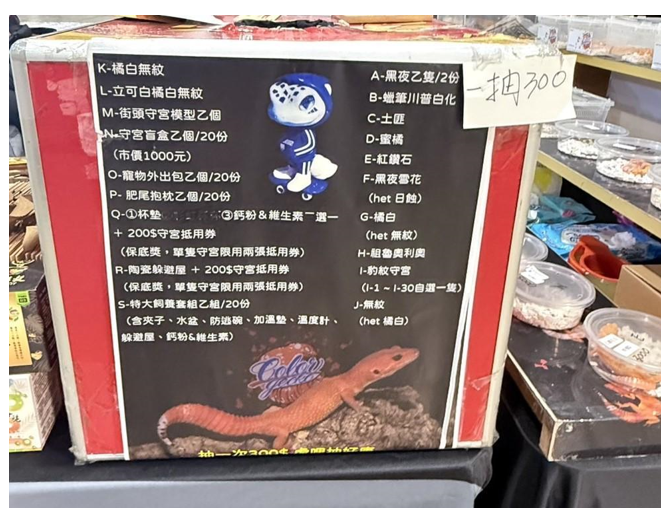 K-橘白無紋
L-立可白橘白無紋
M-街頭守宮模型乙個
N-守宮盲盒乙個/20份
(市價1000元)
O-寵物外出包乙個/20份
P- 肥尾抱枕乙個/20份
Q-①杯墊 ③鈣粉&維生素二選一
+ 200$守宮抵用券
(保底獎,單隻守宮限用兩張抵用券)
R-陶瓷躲避屋 + 200$守宮抵用券
(保底獎,單隻守宮限用兩張抵用券)
S-特大飼養套組乙組/20份
(含夾子、水盆、防逃碗、加溫墊、溫度計、
躲避屋、鈣粉&維生素)
A-黑夜乙隻/2份
B-蠟筆川普白化
C-土匪
D-蜜橘
E-紅鑽石
F-黑夜雪花
(het 日蝕)
G-橘白
(het 無紋)
H-祖魯奧利奧
I-豹紋守宮
(I-1 ~ I-30自選一隻)
J-無紋
(het 橘白)
一抽300
Color
gecko
抽一次300$